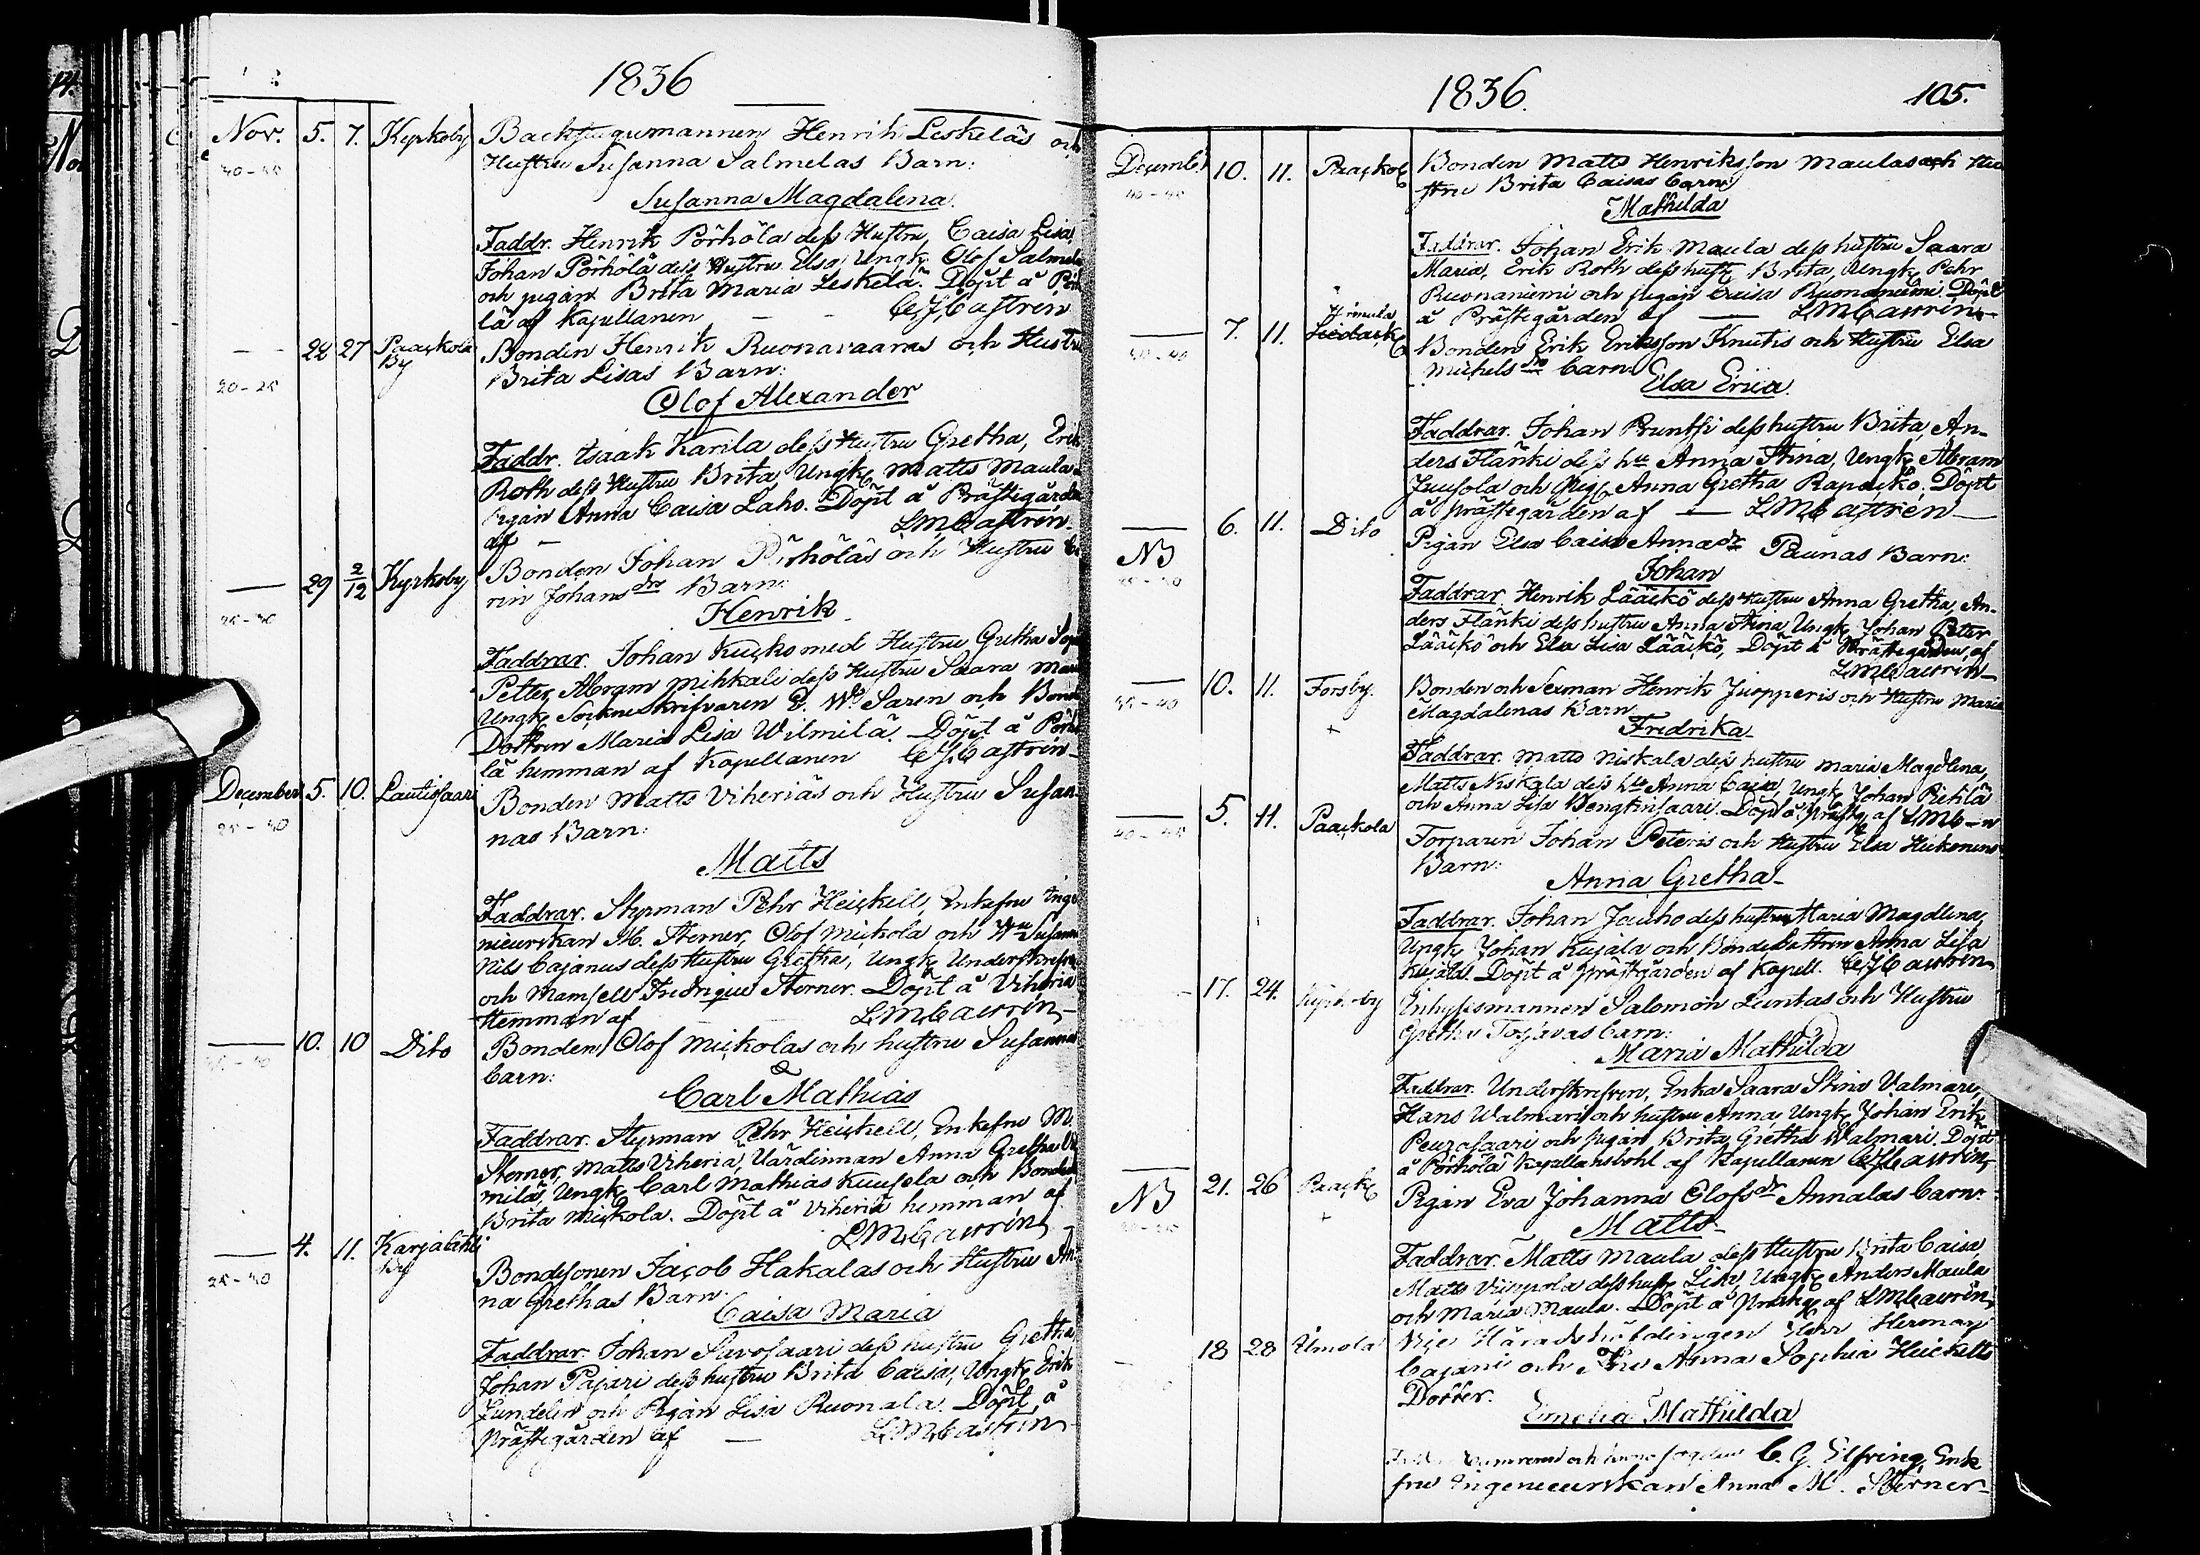 1836
Nov. 5. 7. Kyrkoby Backstugumannen Henrik Leskeläs och
40-45 Hustru Susanna Salmelas Barn:
Susanna Magdalena.
Faddr. Henrik Pörhölä dess Hustru Caisa Lisa,
Johan Pörhölä dess Hustru Elsa, Ungk Olof Salmela
och pigan Brita Maria Leskelä. Döpt å Pörhö
lä af Kapellanen — — Castrén
— 22 27 Paackola By Bonden Henrik Ruonavaaras och Hustru
20-25 Brita Lisas Barn:
Olof Alexander
Faddr. Isaak Karila dess Hustru Gretha, Erik
Roth dess Hustru Brita, Ungk Matts Maula
Pigan Anna Caisa Laho. Döpt å Prästegården
af — LMCastrén.
— 29 2/12 Kyrkoby Bonden Johan Pörhöläs och Hustru
25-30 rin Johansdr Barn:
Henrik
Faddrar. Johan Kucko med Hustru Gretha
Petter Abram Mihkali dess Hustru Saara
Ungk Sockneskrifvaren Saren och Bonde
Dottren Maria Lisa Wilmilä. Döpt å Pörhö
lä hemman af Kapellanen Castrén
December 5. 10. Lautiosaari Bonden Matts Viheriäs och Hustru Susan
25-30 nas Barn:
Matts
Faddrar. Styrman Pehr Heickell, Enkefru Inge
nieurskan M. Sterner, Olof Mickola och Hu Susanna
Nils Cajanus dess Hustru Gretha, Ungk Underskrifven
och Mamsell Fredrique Sterner. Döpt å Viheria
Hemman af LMCastrén
— 10. 10 Dito Bonden Olof Mickolas och hustru Susannas
barn:
Carl Mathias
Faddrar. Styrman Pehr Heickell, Enkefru M.
Sterner, Matts Viheria, Värdinnan Anna Gretha
milä, Ungk Carl Mathias Kuusela och Bonded
Brita Mickola. Döpt å Viheriä hemman af
LMCastrén
— 4. 11. Karjalahti By Bondesonen Jacob Hakalas och Hustru An
na Grethas Barn:
Caisa Maria
Faddrar. Johan Savosaari dess hustru Gretha
Johan Pajari dess hustru Brita Caisa, Ungk Erik
och Pigan Lisa Ruonala. Döpt å
Prästegården af — LMCastrén
1836. 105.
Decemb. 10. 11. Paacko Bonden Matts Henriksson Maulas och Hu
40-45 stru Brita Caisas barn:
Mathilda
Faddrar. Johan Erik Maula dess hustru Saara
Maria, Erik Roth dess hust Brita, Ungk Pehr
Ruonaniemi och pigan Caisa Ruonaniemi. Döpt
å Prästegården af — LMCastrén
— 7. 11. Bonden Erik Eriksson Knutis och Hustru Elsa
Michelsdr barn:
Elsa Erica.
Faddrar. Johan Pruntsi dess hustru Brita, An-
ders Flänki dess hu Anna Stina, Ungk Abram
Juusola och Pig Anna Gretha Rapacko. Döpt
å Prästegården af — LMCastrén
— 6. 11. Dito Pigan Elsa Caisa Annasdr Paunas Barn:
NB
Johan
Faddrar. Henrik Lääckö dess Hustru Anna Gretha, An-
ders Flänki dess hustru Anna Stina, Ungk Johan Peter
Lääckö och Elsa Lisa Lääckö, Döpt å Prästegården af
LMCastrén
— 10. 11. Forsby. Bonden och Sexman Henrik Juopperis och Hustru Maria
35-40 Magdalenas Barn
Fredrika
Faddrar. Matts Niskala dess hustru Maria Magdlena,
Matts Niskala dess hu Anna Caisa, Ungk Johan Pietilä
och Anna Lisa. Döpt å Prästg af LMC-n
— 5. 11. Paackola Torparen Johan Peteris och Hustru Elsa
40-45 Barn:
Anna Gretha
Faddrar. Johan Jauho dess hustru Maria Magdlena,
Ungk Johan Kujala och Bondedottren Anna Lisa
Kujala. Döpt å Prästgården af Kapell. Castrén
17. 24. Kyrkoby Inhysesmannen Salomon Luntas och Hustru
Gretha barn:
Maria Mathilda
Faddrar. Underskrefven, Enka Saara Stina Valmari,
Hans Walmari och hustru Anna, Ungk Johan Erik
Peurasaari och pigan Brita Gretha Walmari. Döpt
å Pörhölä Kapellansbohl af Kapellanen Castrén
— 21. 26 Paack Pigan Eva Johanna Olofsdr Annalas barn:
NB
Matts
Faddrar. Matts Maula dess Hustru Brita Caisa,
Matts dess hust Lisa, Ungk Anders Maula
och Maria Maula. Döpt å Prästg af LMCastrén
— 18 28 Umola Vice Häradshöfdingen Herr Herman
Cajani och Fru Anna Sophia Heickells
Dotter.
Emelia Mathilda
och C. G. Elfving, Enk
fru Ingenieurskan Anna M. Sterner